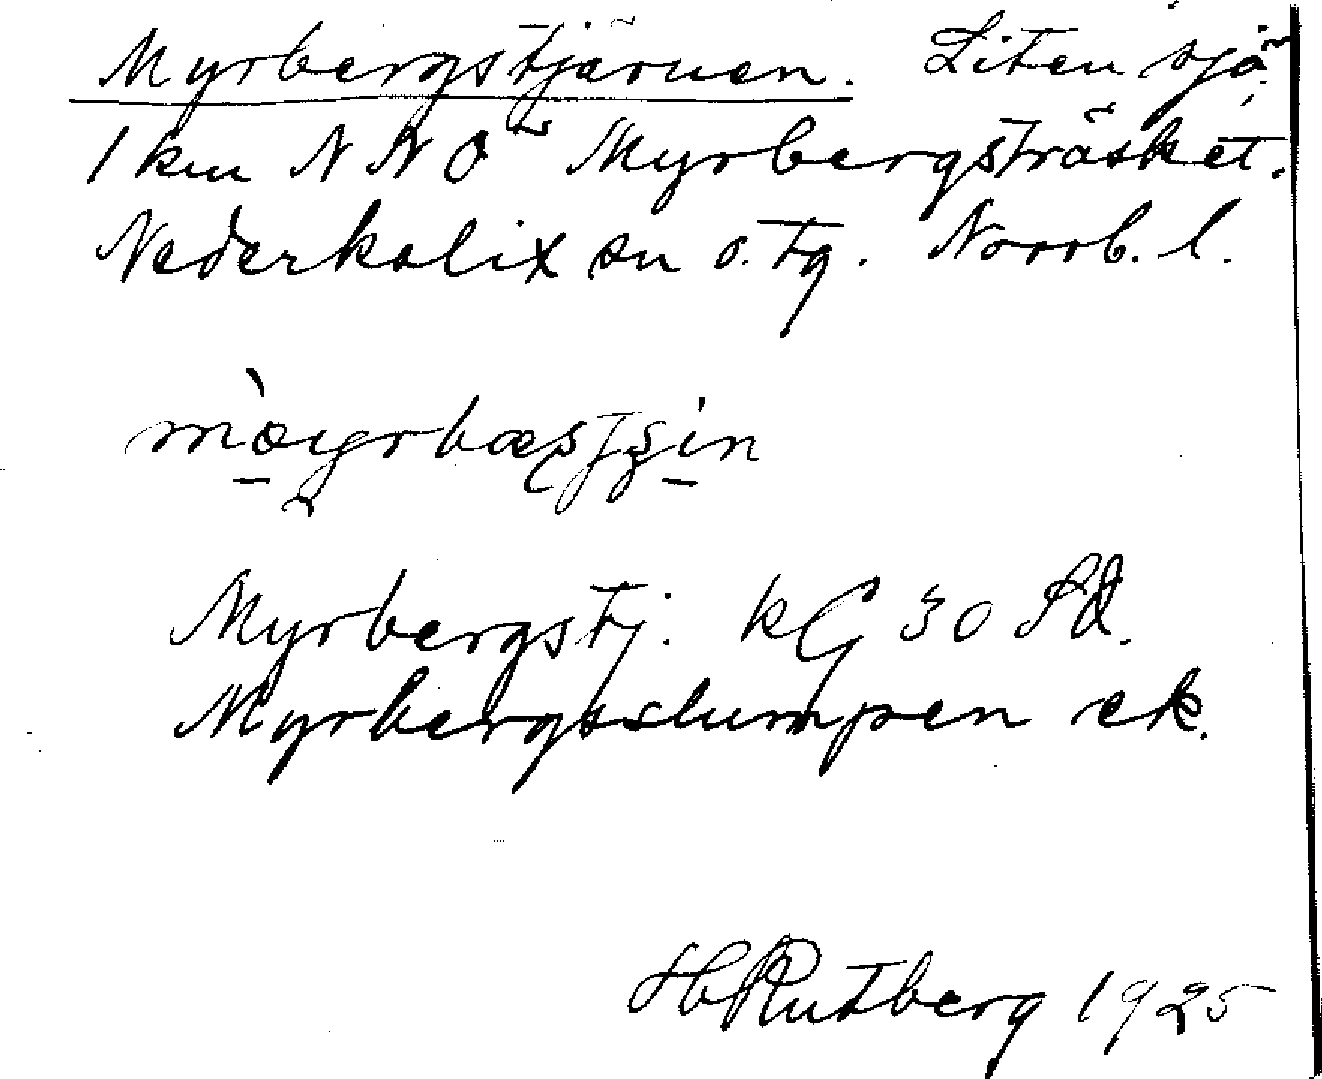 Myrbergstjärnen. Liten sjö
1 km N N O Myrbergsträsket.
Nederkalix sn o. tg. Norrb. l.
Myrbergstj. kG 30 Sd.
Myrbergsslumpen ek.
H Rutberg 1925